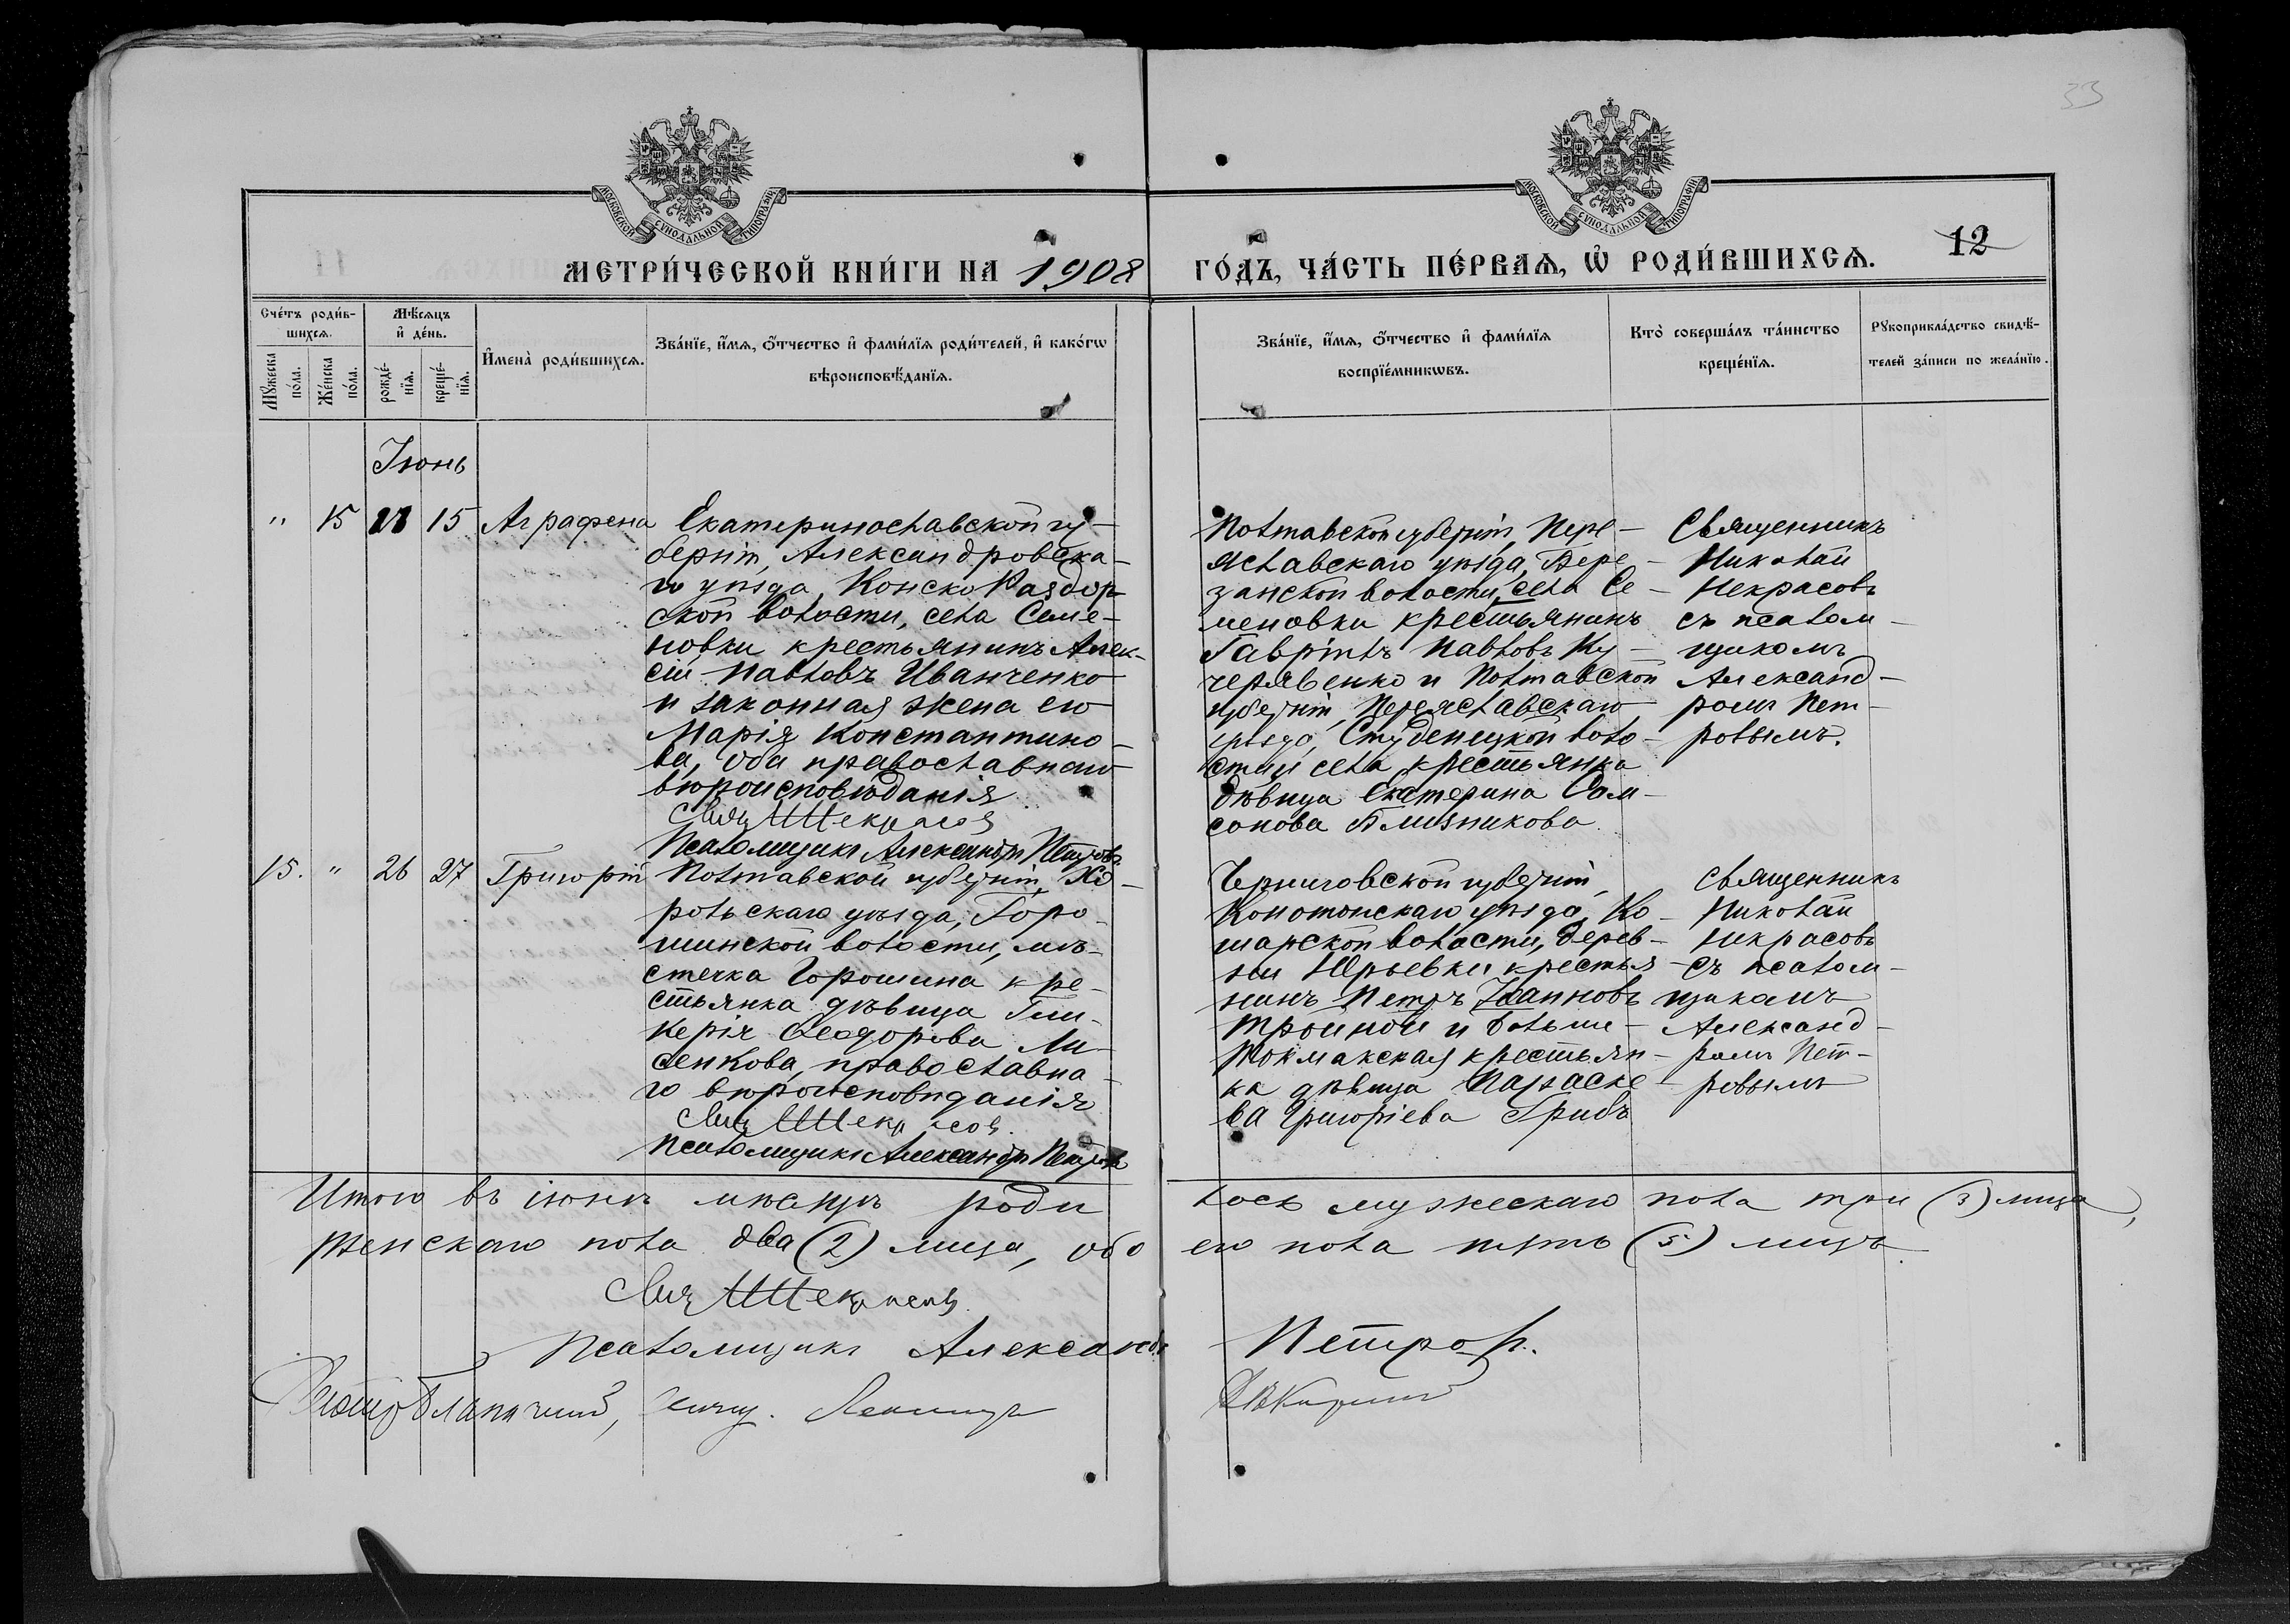 33
МОСКОВСКОЙ СУНОДАЛЬНОЙ ТИПОГРАФІИ
МОСКОВСКОЙ СУНОДАЛЬНОЙ ТИПОГРАФІИ
МЕТРИ́ЧЕСКОЙ КНИ́ГИ НА 1908
ГО́ДЪ, ЧА́СТЬ ПЕ́РВАѦ, Ѡ҆ РОДИ́ВШИХСѦ.
12
Сче́тъ роди́в-
шихсѧ.
Мѣ́сѧцъ
и҆ де́нь.
Мꙋ́жеска
по́ла.
Же́нска
по́ла.
рожде́-
нїѧ.
креще́-
нїѧ.
И҆мена̀ роди́вшихсѧ.
Зва́нїе, и҆́мѧ, ѻ҆́тчество и҆ фами́лїѧ роди́телей, и҆ како́гѡ
вѣроисповѣ́данїѧ.
Зва́нїе, и҆́мѧ, ѻ҆́тчество и҆ фами́лїѧ
воспрїе́мникѡвъ.
Кто̀ соверша́лъ та́инство
креще́нїѧ.
Рꙋкоприкла́дство свидѣ́-
телей за́писи по жела́нїю.
Іюнь
" 15 15 Аграфена
Екатеринославской гу-
берніи, Александровска-
го уѣзда, Конско Раздор-
ской волости, села Семе-
новки крестьянинъ Алек-
сій Павловъ Иванченко
и законная жена его
Марія Константино-
ва, оба православнаго
вѣроисповѣданія
Свящ Н Некрасов
Псаломщикъ Александръ Петровъ
Полтавской губерніи, Пере-
яславскаго уѣзда, Бере-
занской волости, села Се-
меновки крестьянинъ
Гавріилъ Павловъ Ку-
черявенко и Полтавской
губерніи, Переяславскаго
уѣзда, Студеницкой воло-
сти и села, крестьянка
дѣвица Екатерина Сам-
сонова Близникова
Священникъ
Николай
Некрасовъ
съ псалом-
щикомъ
Александ-
ромъ Пет-
ровымъ.
15. " 26 27 Григорій
Полтавской губерніи, Хо-
рольскаго уѣзда, Горо-
шинской волости, мѣ-
стечка Горошина кре-
стьянка дѣвица Гли-
керія Ѳеодорова Ли-
сенкова, православна-
го вѣроисповѣданія
Свящ Н Некрасов.
Псаломщикъ Александръ Петровъ
Черниговской губерніи,
Конотопскаго уѣзда, Ко-
шарской волости, дерев-
ни Юрьевки крестья-
нинъ Петръ Іоанновъ
Тройной и больше-
Токмакская крестьян-
ка дѣвица Параске-
ва Григоріева Грибъ
Священникъ
Николай
Некрасовъ
съ псалом-
щикомъ
Александ-
ромъ Пет-
ровымъ
Итого въ іюнѣ мѣсяцѣ роди лось мужескаго пола три (3) лица,
женскаго пола два (2) лица, обо его пола пять (5) лицъ.
Свящ Н Некрасовъ.
Псаломщикъ Александръ Петровъ.